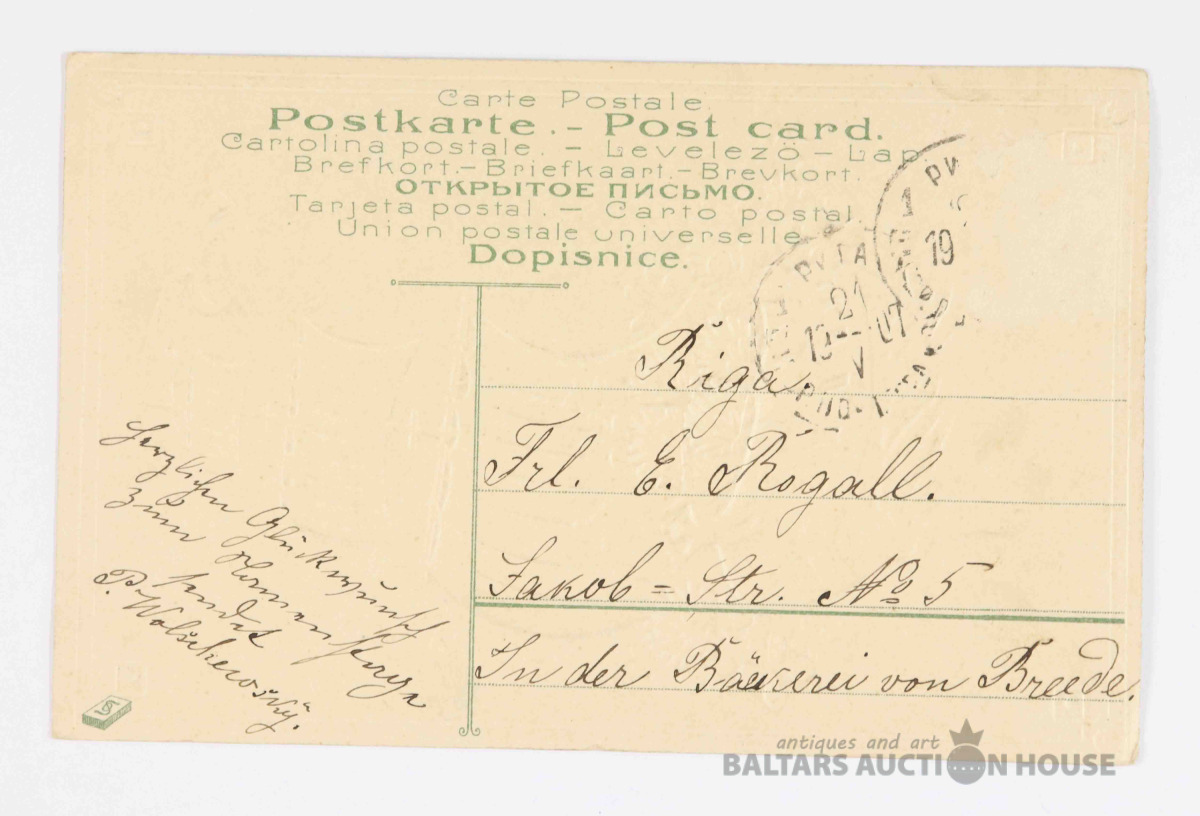 Carte Postale.
Postkarte. - Post card.
Cartolina postale. - Levelezö - Lap
Brefkort. - Briefkaart. - Brevkort.
ОТКРЫТОЕ ПИСЬМО.
Tarjeta postal. - Carto postal.
Union postale universelle
Dopisnice.
РИГА
19
РИГА
21
12 - 07
V
Riga.
Frl. E. Rogall.
Jakob = Str. № 5
In der Bäckerei von Breede.
Herzlichen Glückwunsch
zum Namenstage
sendet
P. Wolschkerosky.
antiques and art
BALTARS AUCTION HOUSE